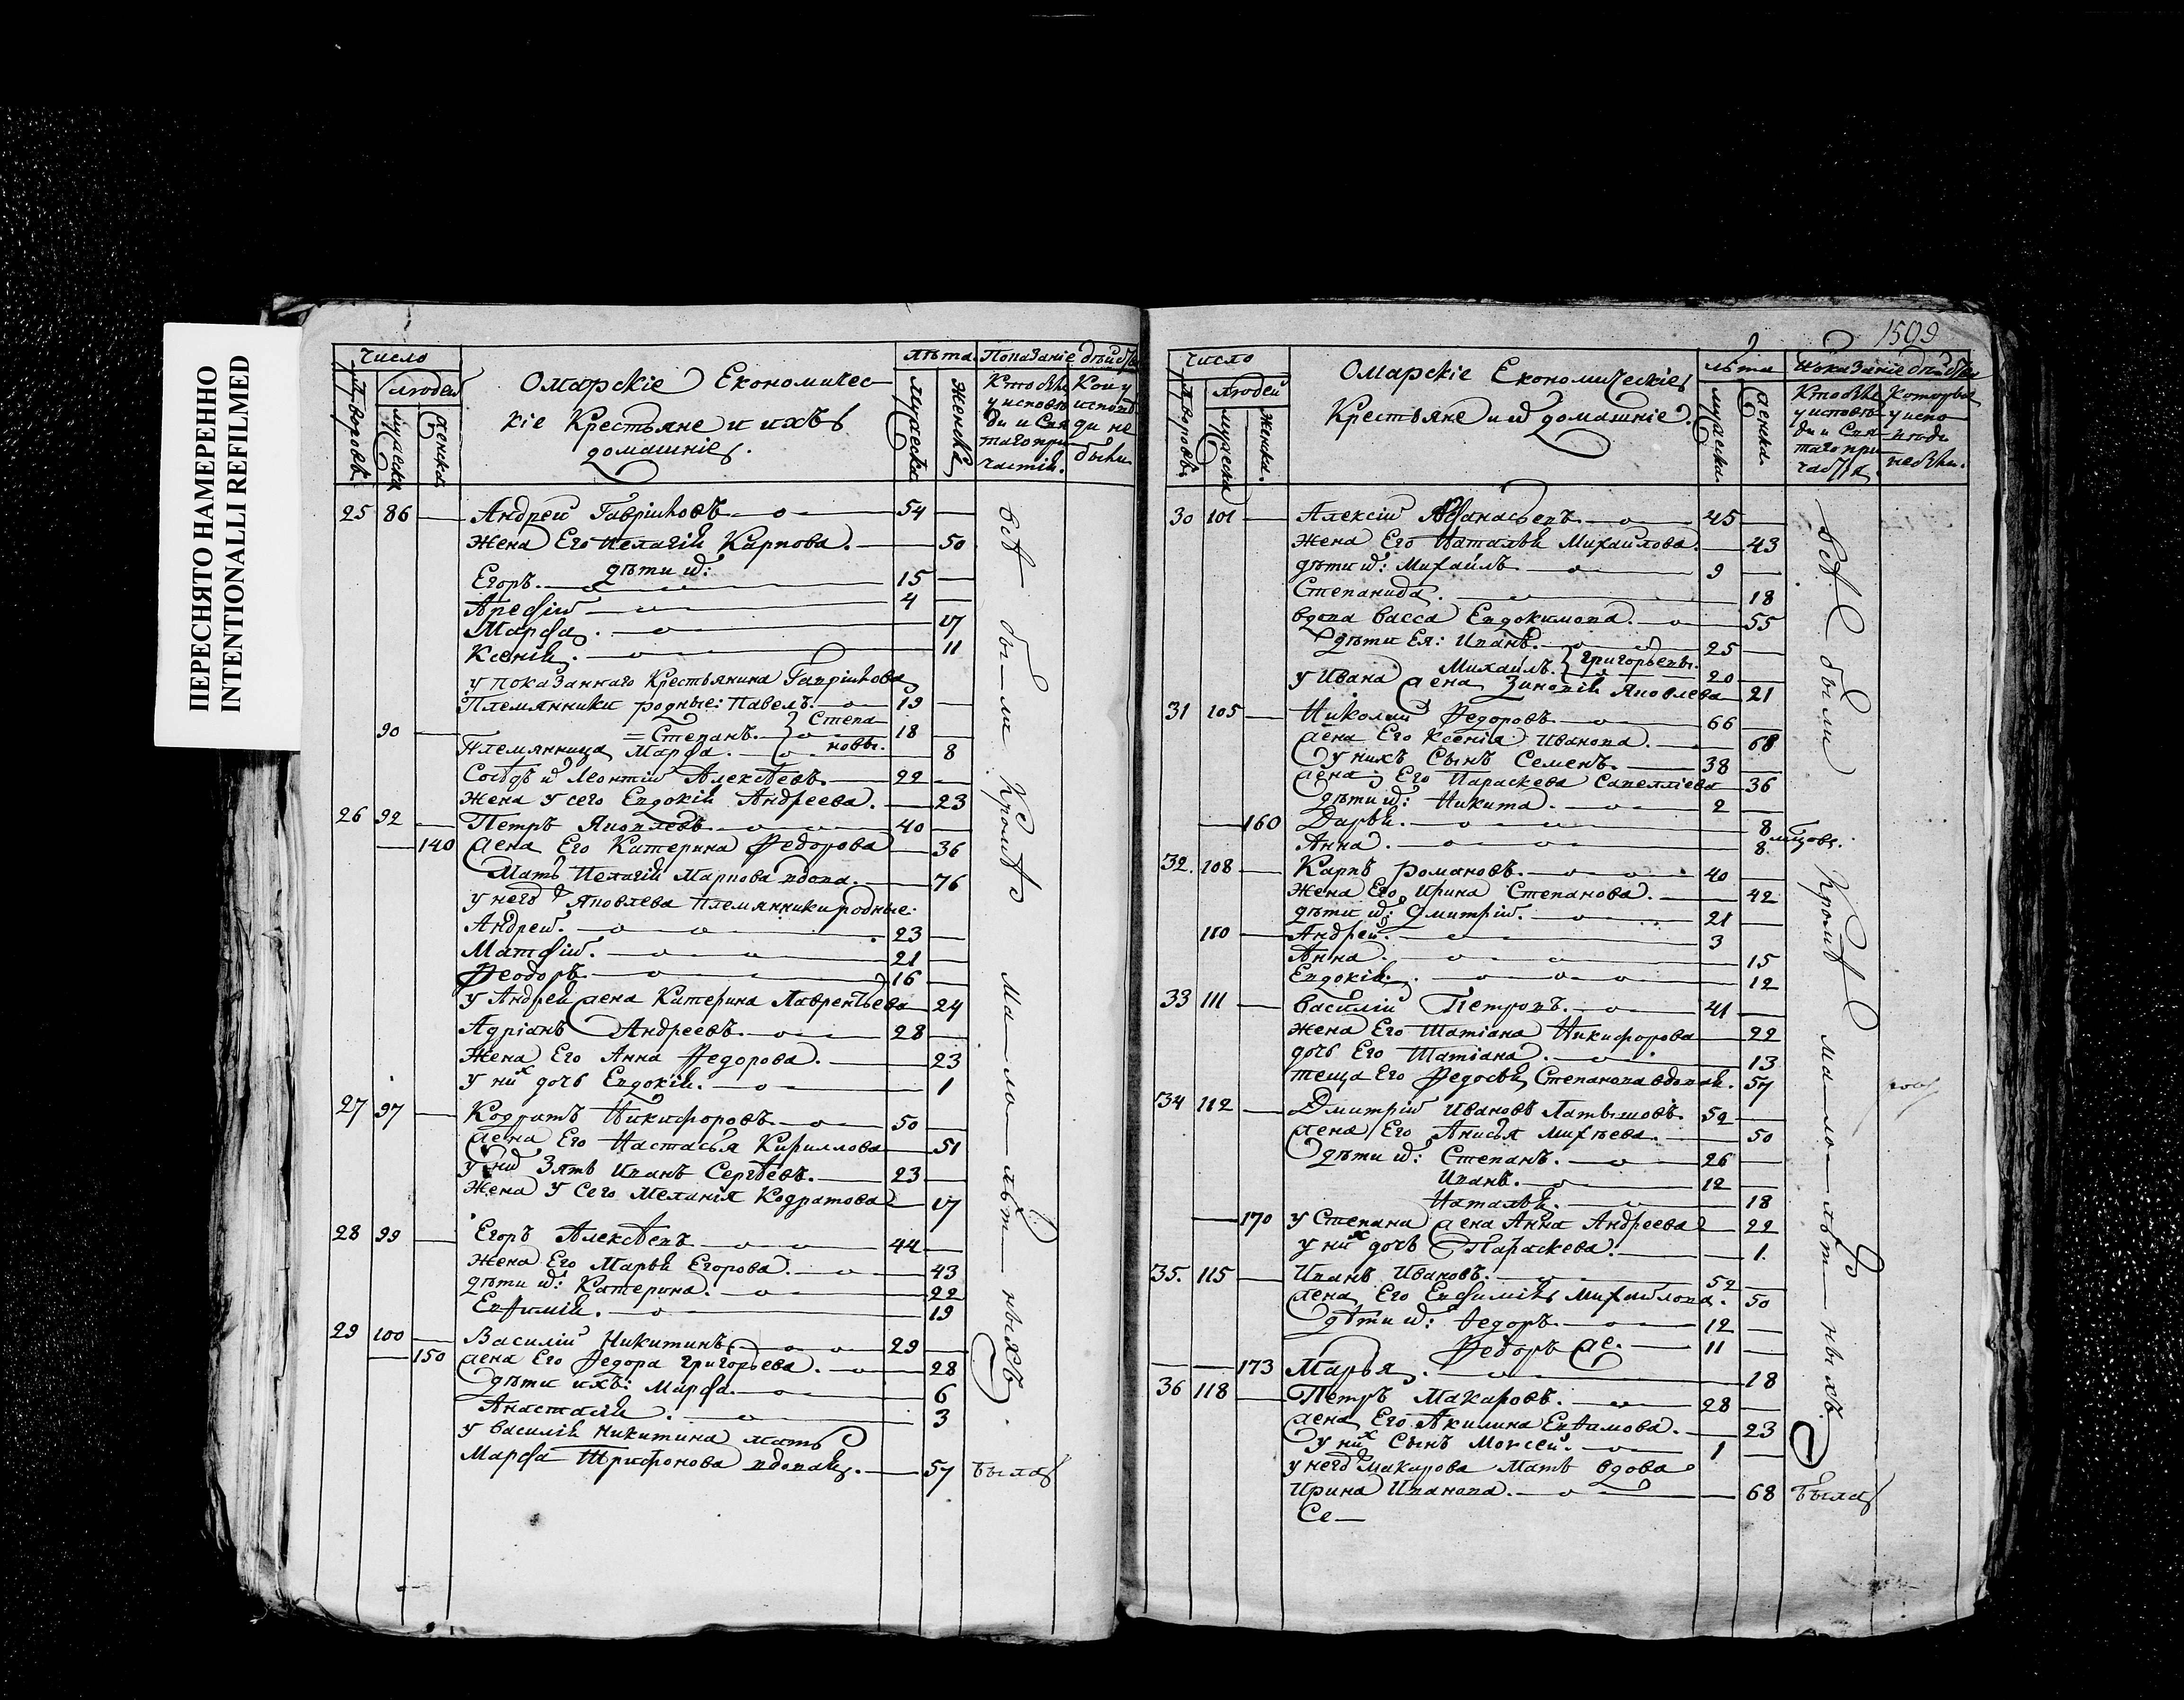 ПЕРЕСНЯТО НАМЕРЕННО
INTENTIONALLI REFILMED
число
людей
дворовъ
мужеска
женска
Омарскіе Економичес-
кіе Крестьяне и ихъ
домашніе.
лѣта
мужеска
женска
Показаніе
25 86 Андрей Гавриловъ 54
жена Его Пелагія Карпова. 50
дѣти их:
Егоръ. 15
Арефій 4
Марѳа. 17
Ксенія. 11
у показаннаго Крестьянина Гаврилова
Племянники родные: Павелъ. 19
90 Степанъ. } Степановы. 18
Племянница Марѳа. 8
Сосѣдъ их Леонтій Алексѣевъ. 22
жена у сего Евдокія Андреева. 23
26 92 Петръ Яковлевъ 40
140 жена Его Катерина Федорова 36
Мать Пелагія Маркова вдова. 76
у него Яковлева племянники родные:
Андрей. 23
Матфій. 21
Феодоръ. 16
у Андрея жена Катерина Лаврентьева 24
Адріанъ Андреевъ. 28
жена Его Анна Федорова. 23
у них дочь Евдокія. 1
27 97 Кодратъ Никифоровъ. 50
жена Его Настасья Кириллова 51
у них Зять Иванъ Сергѣевъ. 23
жена у сего Меланія Кодратова 17
28 99 Егоръ Алексѣевъ 44
жена Его Марья Егорова. 43
дѣти их: Катерина. 22
Евфимія. 19
29 100 Василій Никитинъ. 29
150 жена Его Федора григорьева. 28
дѣти ихъ: Марѳа. 6
Анастасія. 3
у василія никитина мать
Марѳа Трифонова вдовая. 57 была
всѣ были Кромѣ малолѣтныхъ.
1509
число
людей
дворовъ
мужеска
женска
Омарскіе Економическіе
Крестьяне и их домашніе.
лѣта
мужеска
женска
Показаніе
30 101 Алексій Афанасьевъ 45
жена Его Наталья Михайлова. 43
дѣти их: Михаилъ 9
Степанида. 18
вдова васса Евдокимова. 55
дѣти Ея: Иванъ. 25
Михаилъ. } григорьевы. 20
у Ивана жена Зиновія Яковлева 21
31 105 Николай Федоровъ. 66
жена Его Ксенія Иванова. 68
у нихъ Сынъ Семенъ. 38
жена Его Параскева Савелліева 36
дѣти их: Никита. 2
160 Дарья. 8
Анна. 8
32. 108 Карпъ Романовъ. 40
жена Его Ирина Степанова. 42
дѣти их: Дмитрій. 21
110 Андрей. 3
Анна. 15
Евдокія. 12
33 111 василій Петровъ. 41
жена Его Татіана Никифорова 22
дочь Его Татіана. 13
теща Его Федосья Степанова вдовая. 57
34 112 Дмитрій Ивановъ Латышовъ. 52
жена Его Анисья Михѣева. 50
дѣти их: Степанъ. 26
Иванъ. 12
Наталья. 18
170 у Степана жена Анна Андреева 22
у них дочь Параскева. 1.
35. 115 Иванъ Ивановъ. 52
жена Его Евфимія Михайлова. 50
дѣти их: Федоръ. 12
Федоръ же. 11
173 Марья. 18
36 118 Петръ Макаровъ. 28
жена Его Акилина Ефимова. 23
у них Сынъ Моисей. 1
у него Макарова Мать вдова
Ирина Иванова. 68 была
Се—
всѣ были Кромѣ малолѣтныхъ.